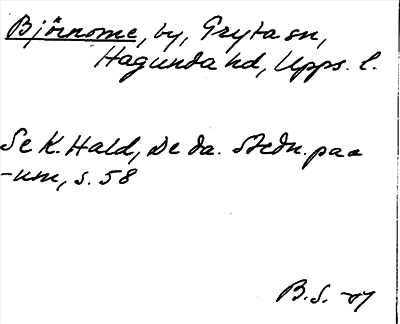 Björnome, by, Gryta sn,
Hagunda hd, Upps. l.
Se K. Hald, De da. Stedn. paa
-um, s. 58
B. S. -07